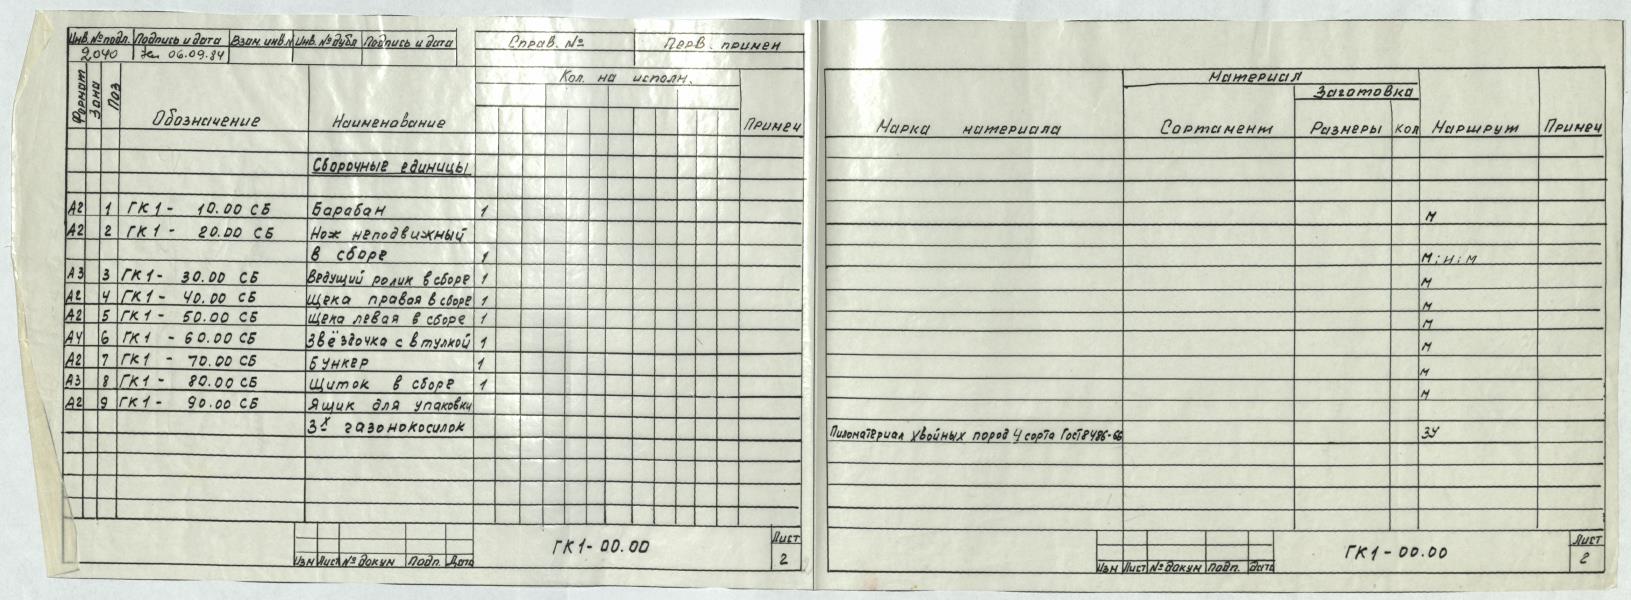 Инв.№подл. Подпись и дата Взам.инв.№ Инв.№дубл Подпись и дата Справ. № Перв. примен
2040 06.09.84
Формат Зона Поз Обозначение Наименование Кол. на исполн. Примеч
Сборочные единицы
А2 1 ГК1- 10.00 СБ Барабан 1
А2 2 ГК1- 20.00 СБ Нож неподвижный
в сборе 1
А3 3 ГК1- 30.00 СБ Ведущий ролик в сборе 1
А2 4 ГК1- 40.00 СБ Щека правая в сборе 1
А2 5 ГК1- 50.00 СБ Щека левая в сборе 1
А4 6 ГК1 - 60.00 СБ Звёздочка с втулкой 1
А2 7 ГК1 - 70.00 СБ Бункер 1
А3 8 ГК1- 80.00 СБ Щиток в сборе 1
А2 9 ГК1- 90.00 СБ Ящик для упаковки
3х газонокосилок
Изм Лист № докум Подп. Дата
ГК1-00.00
Лист
2
Материал
Заготовка
Марка материала Сортамент Размеры Кол Маршрут Примеч
м
м;н;м
м
м
м
м
м
м
Пиломатериал хвойных пород 4 сорта Гост 8486-66 ЗУ
Изм Лист № докум Подп. Дата
ГК1-00.00
Лист
2